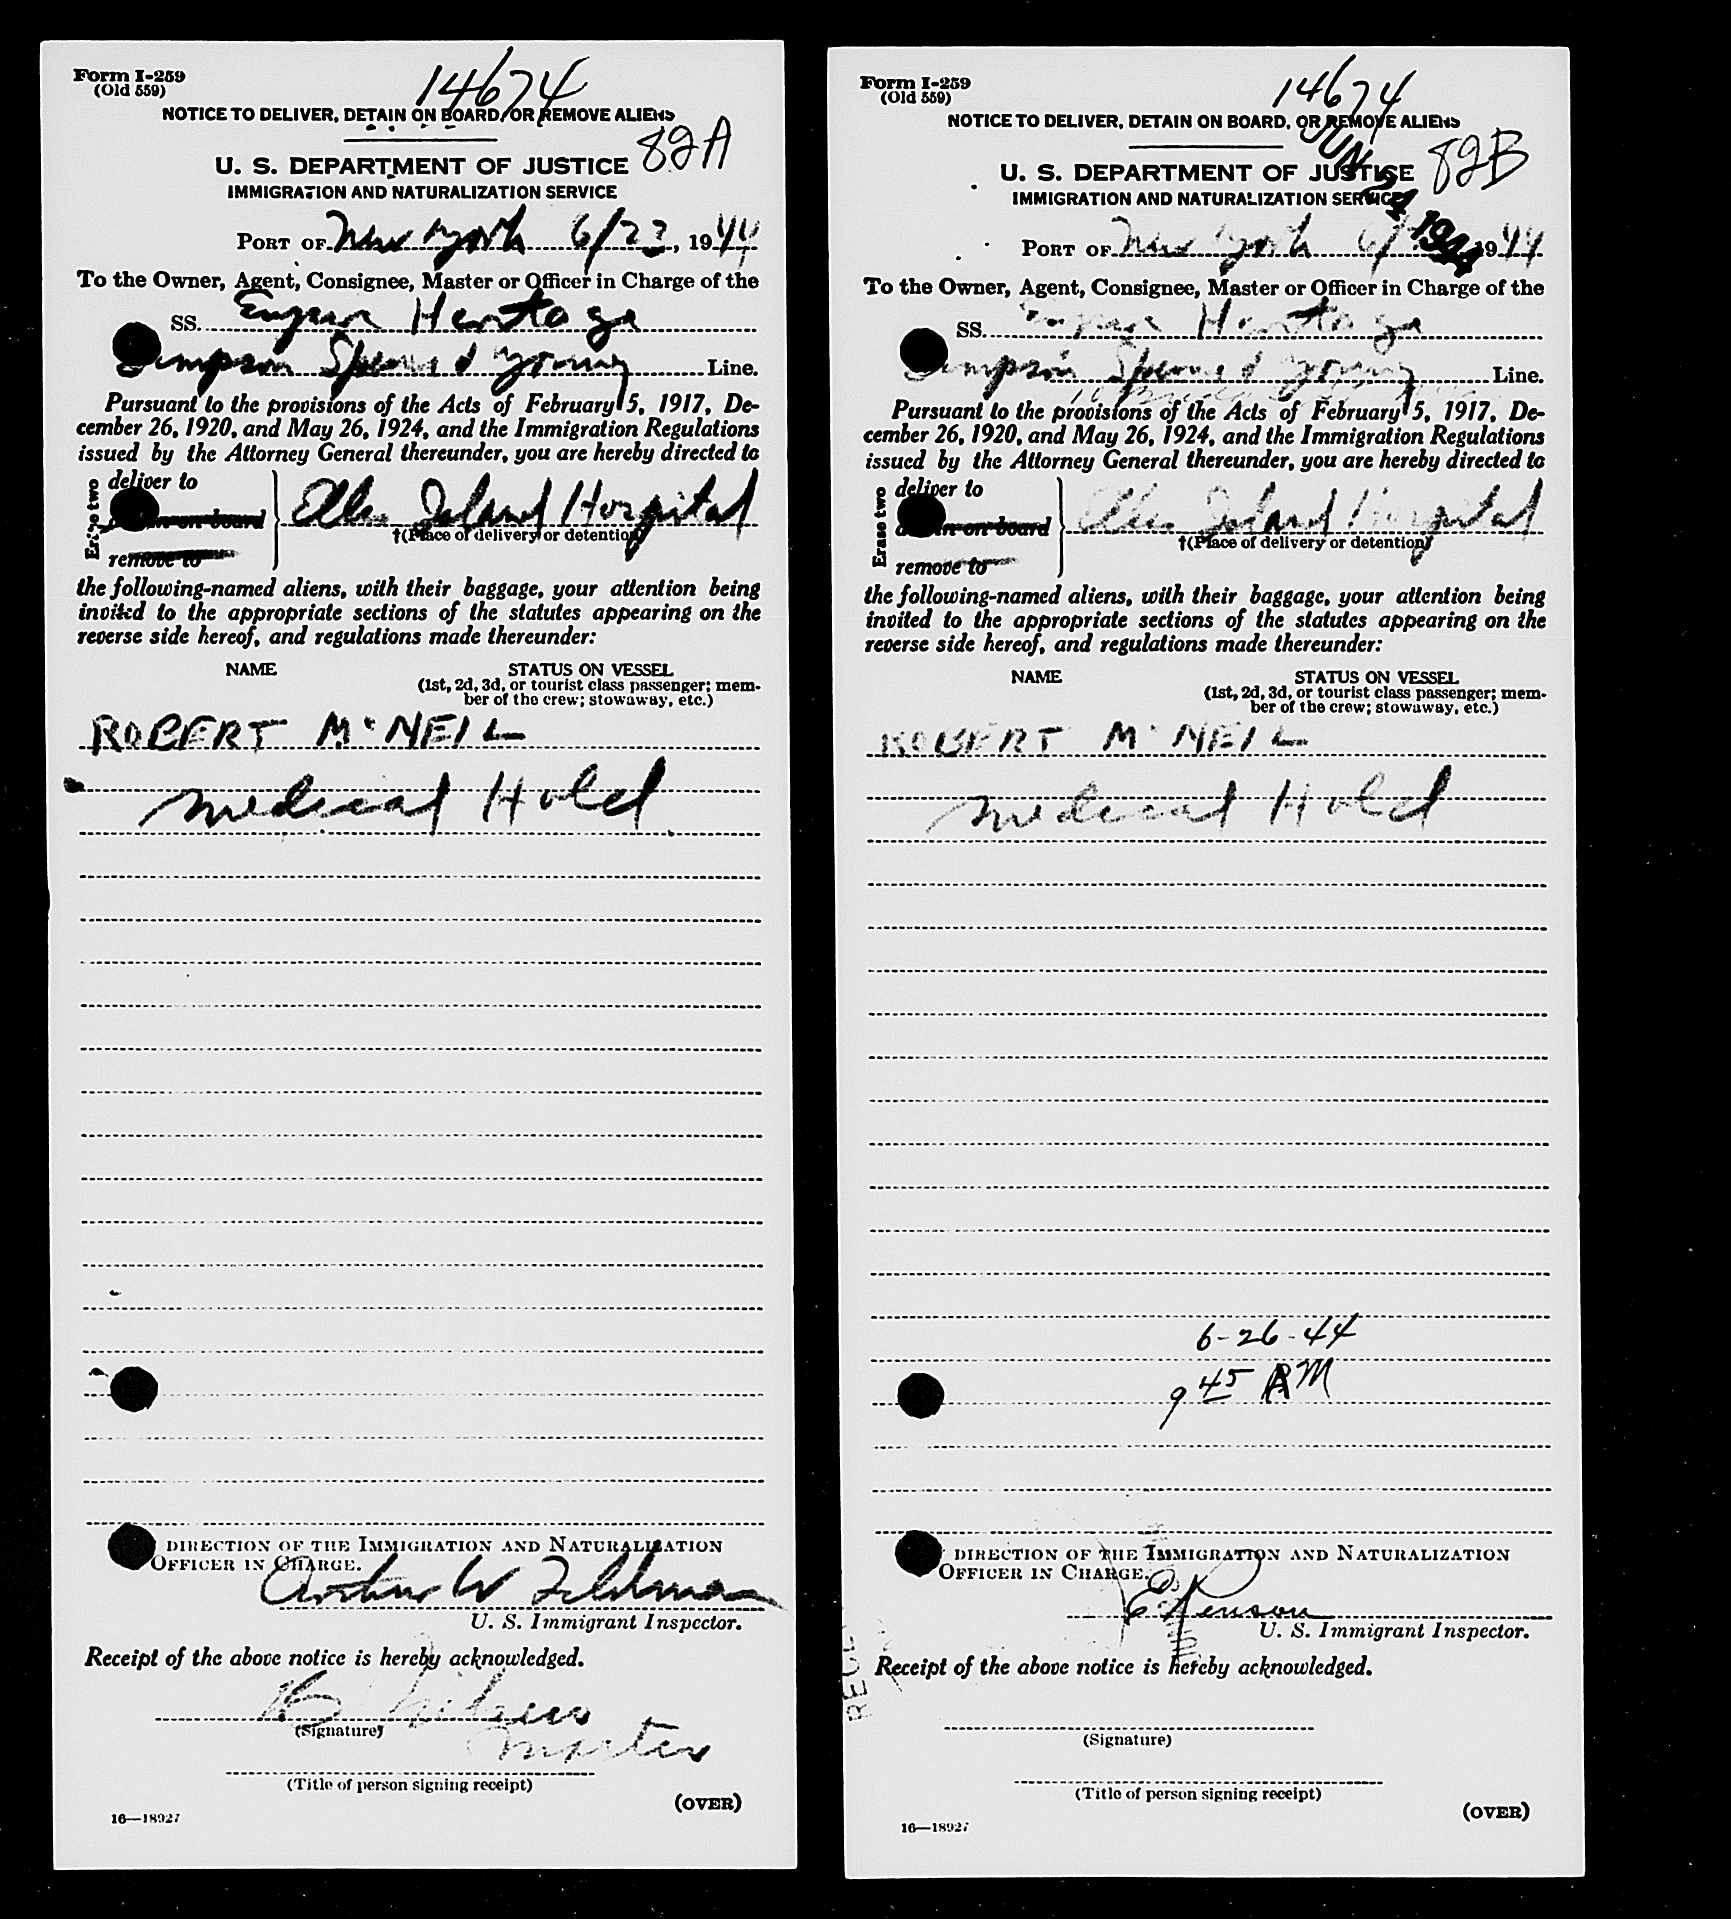 Form I-259
(Old 559)
14674
NOTICE TO DELIVER, DETAIN ON BOARD, OR REMOVE ALIENS
82A
U. S. DEPARTMENT OF JUSTICE
IMMIGRATION AND NATURALIZATION SERVICE
PORT OF New York 6/23, 1944
To the Owner, Agent, Consignee, Master or Officer in Charge of the
SS. Empire Heritage
Simpson Spence & Young Line.
Pursuant to the provisions of the Acts of February 5, 1917, De-
cember 26, 1920, and May 26, 1924, and the Immigration Regulations
issued by the Attorney General thereunder, you are hereby directed to
Erase two
deliver to
on board
remove to
Ellis Island Hospital
†(Place of delivery or detention)
the following-named aliens, with their baggage, your attention being
invited to the appropriate sections of the statutes appearing on the
reverse side hereof, and regulations made thereunder:
NAME
STATUS ON VESSEL
(1st, 2d, 3d, or tourist class passenger; mem-
ber of the crew; stowaway, etc.)
ROBERT McNEIL
Medical Hold
DIRECTION OF THE IMMIGRATION AND NATURALIZATION
OFFICER IN CHARGE.
Arthur W Feldman
U. S. Immigrant Inspector.
Receipt of the above notice is hereby acknowledged.
(Signature)
Master
(Title of person signing receipt)
(OVER)
16—18927
Form I-259
(Old 559)
14674
NOTICE TO DELIVER, DETAIN ON BOARD, OR REMOVE ALIENS
82B
JUN 24 1944
U. S. DEPARTMENT OF JUSTICE
IMMIGRATION AND NATURALIZATION SERVICE
PORT OF New York 6/ 1944
To the Owner, Agent, Consignee, Master or Officer in Charge of the
SS. Empire Heritage
Simpson Spence & Young Line.
Pursuant to the provisions of the Acts of February 5, 1917, De-
cember 26, 1920, and May 26, 1924, and the Immigration Regulations
issued by the Attorney General thereunder, you are hereby directed to
Erase two
deliver to
on board
remove to
Ellis Island Hospital
†(Place of delivery or detention)
the following-named aliens, with their baggage, your attention being
invited to the appropriate sections of the statutes appearing on the
reverse side hereof, and regulations made thereunder:
NAME
STATUS ON VESSEL
(1st, 2d, 3d, or tourist class passenger; mem-
ber of the crew; stowaway, etc.)
ROBERT McNEIL
Medical Hold
6-26-44
9 45 AM
DIRECTION OF THE IMMIGRATION AND NATURALIZATION
OFFICER IN CHARGE.
U. S. Immigrant Inspector.
Receipt of the above notice is hereby acknowledged.
(Signature)
(Title of person signing receipt)
(OVER)
16—18927